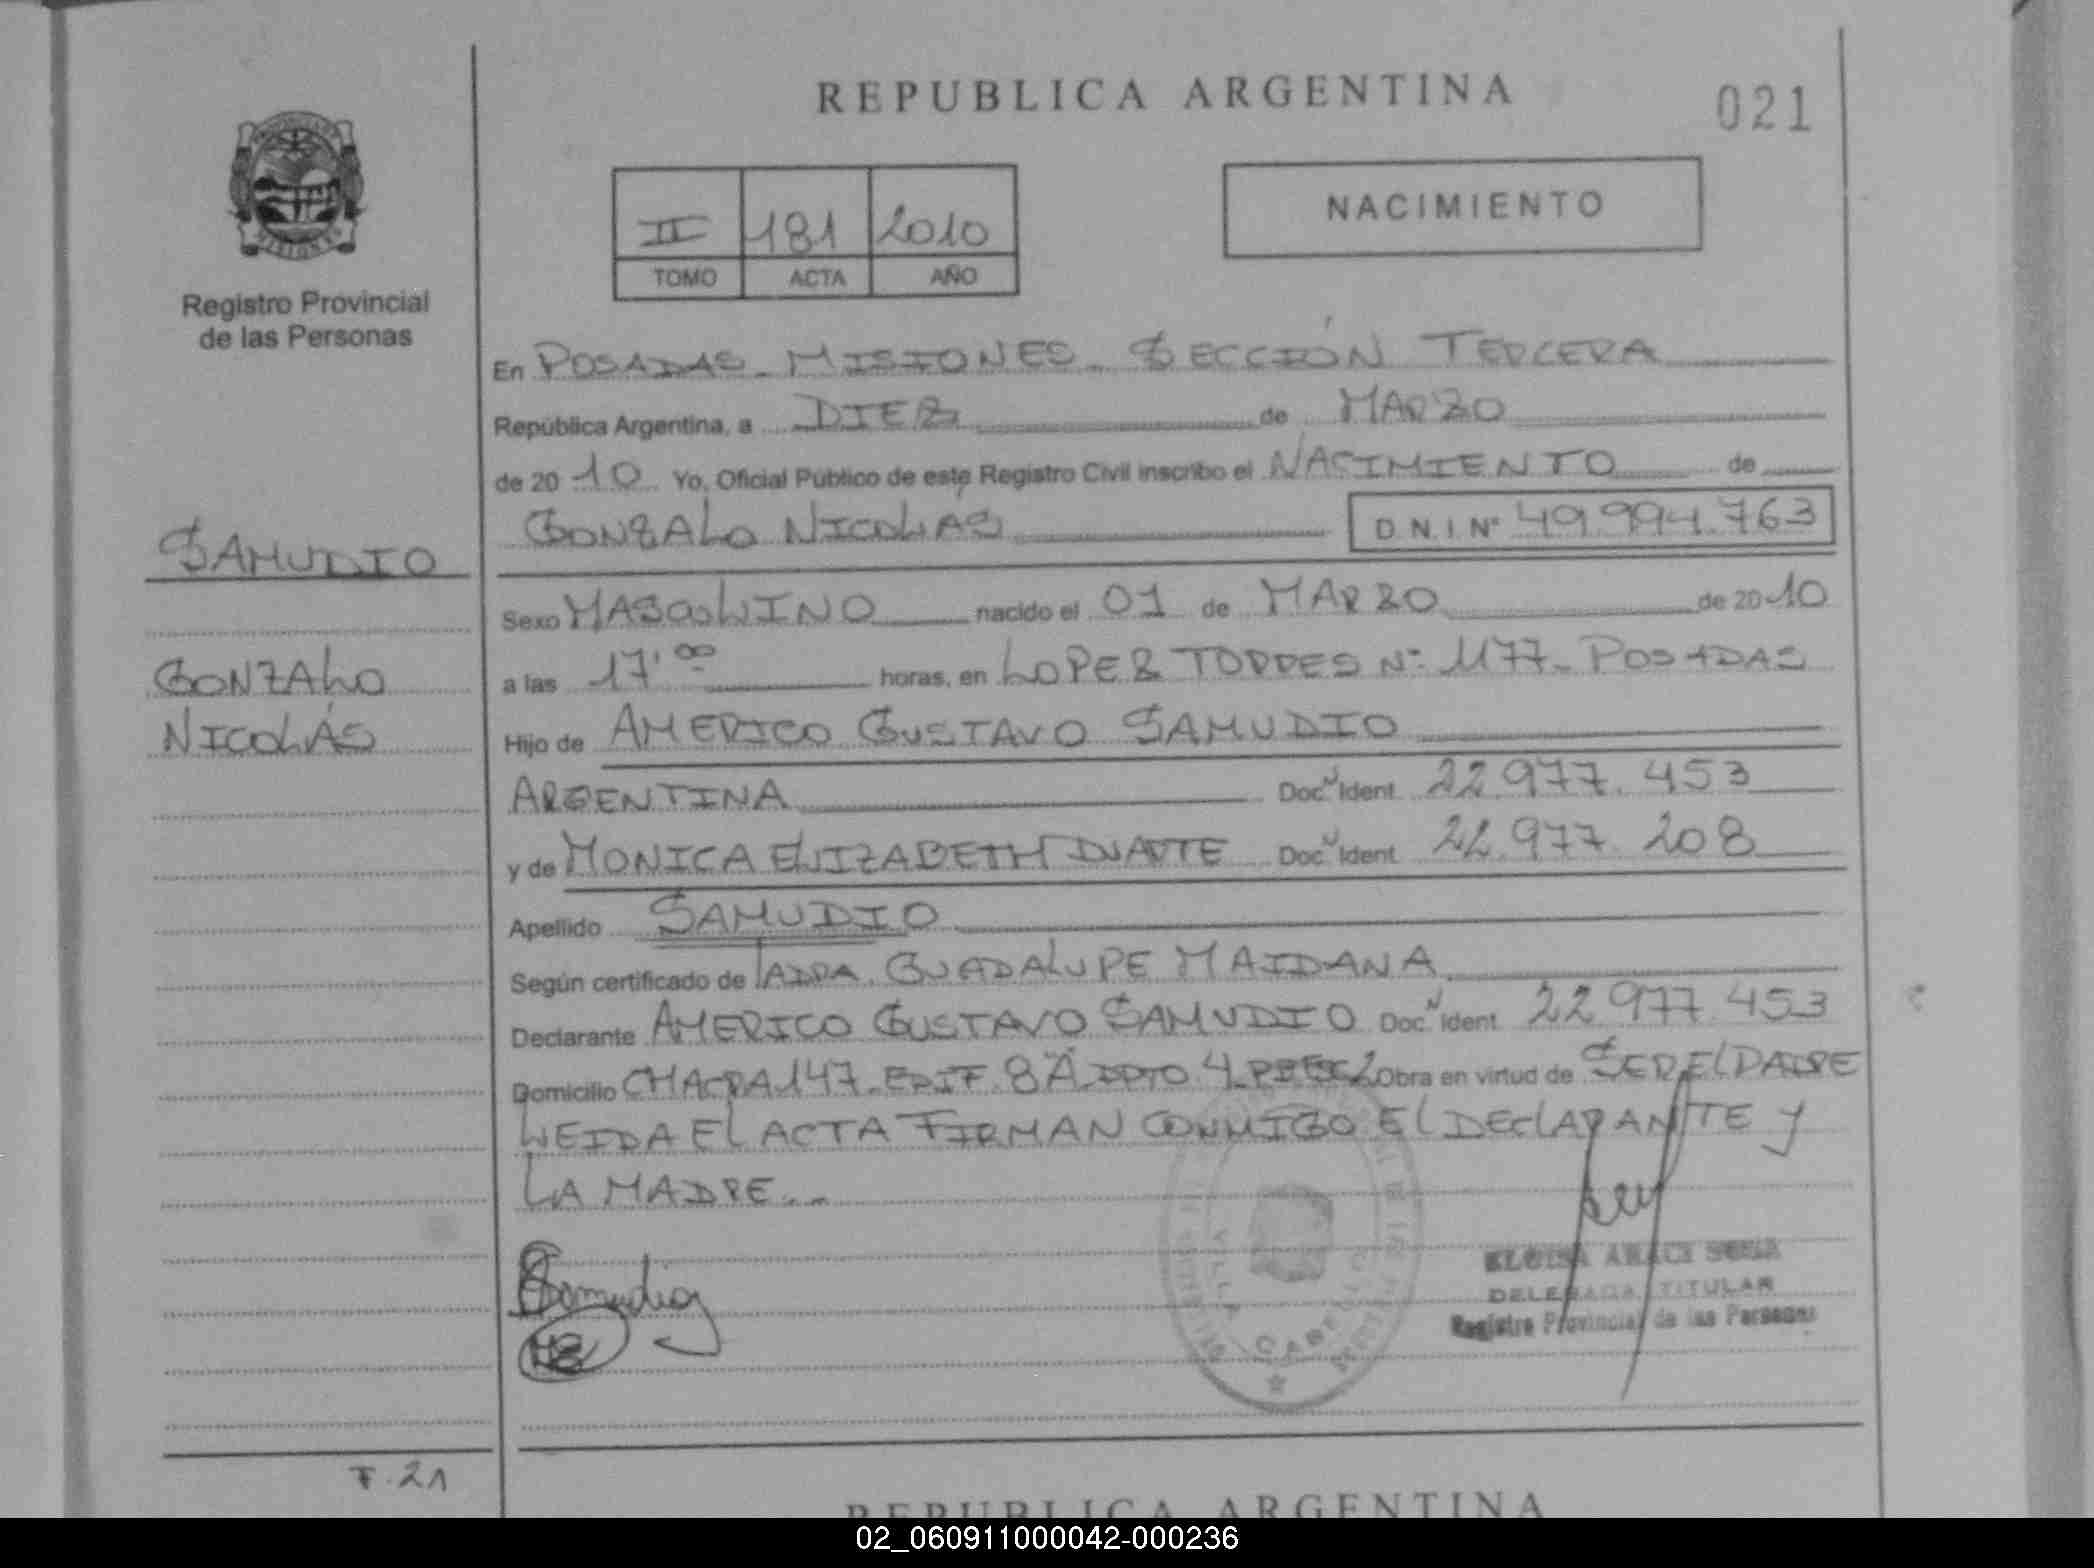 REPUBLICA ARGENTINA
021
NACIMIENTO
II 181 2010
TOMO ACTA AÑO
Registro Provincial
de las Personas
En POSADAS - MISIONES - SECCIÓN TERCERA
República Argentina, a DIEZ de MARZO
de 2010 Yo, Oficial Público de este Registro Civil inscribo el NACIMIENTO de
GONZALO NICOLAS D.N.I. N° 49.994.763
SAMUDIO
GONZALO
NICOLÁS
Sexo MASCULINO nacido el 01 de MARZO de 2010
a las 17:00 horas, en LOPEZ TORRES N° 1177 - POSADAS
Hijo de AMERICO GUSTAVO SAMUDIO
ARGENTINA Doc. N Ident 22.977.453
y de MONICA ELIZABETH DUARTE Doc. N Ident 22.977.208
Apellido SAMUDIO
Según certificado de GUADALUPE MAIDANA
Declarante AMERICO GUSTAVO SAMUDIO Doc. N Ident 22.977.453
Domicilio CHACRA 147 - EDIF. 8A DPTO 4 2 Obra en virtud de SER EL PADRE
LEIDA EL ACTA FIRMAN CONMIGO EL DECLARANTE Y
LA MADRE..
Samudio
VILLA CABELLO
DELEGADA TITULAR
Registro Provincial de las Personas
F. 21
REPUBLICA ARGENTINA
02_060911000042-000236